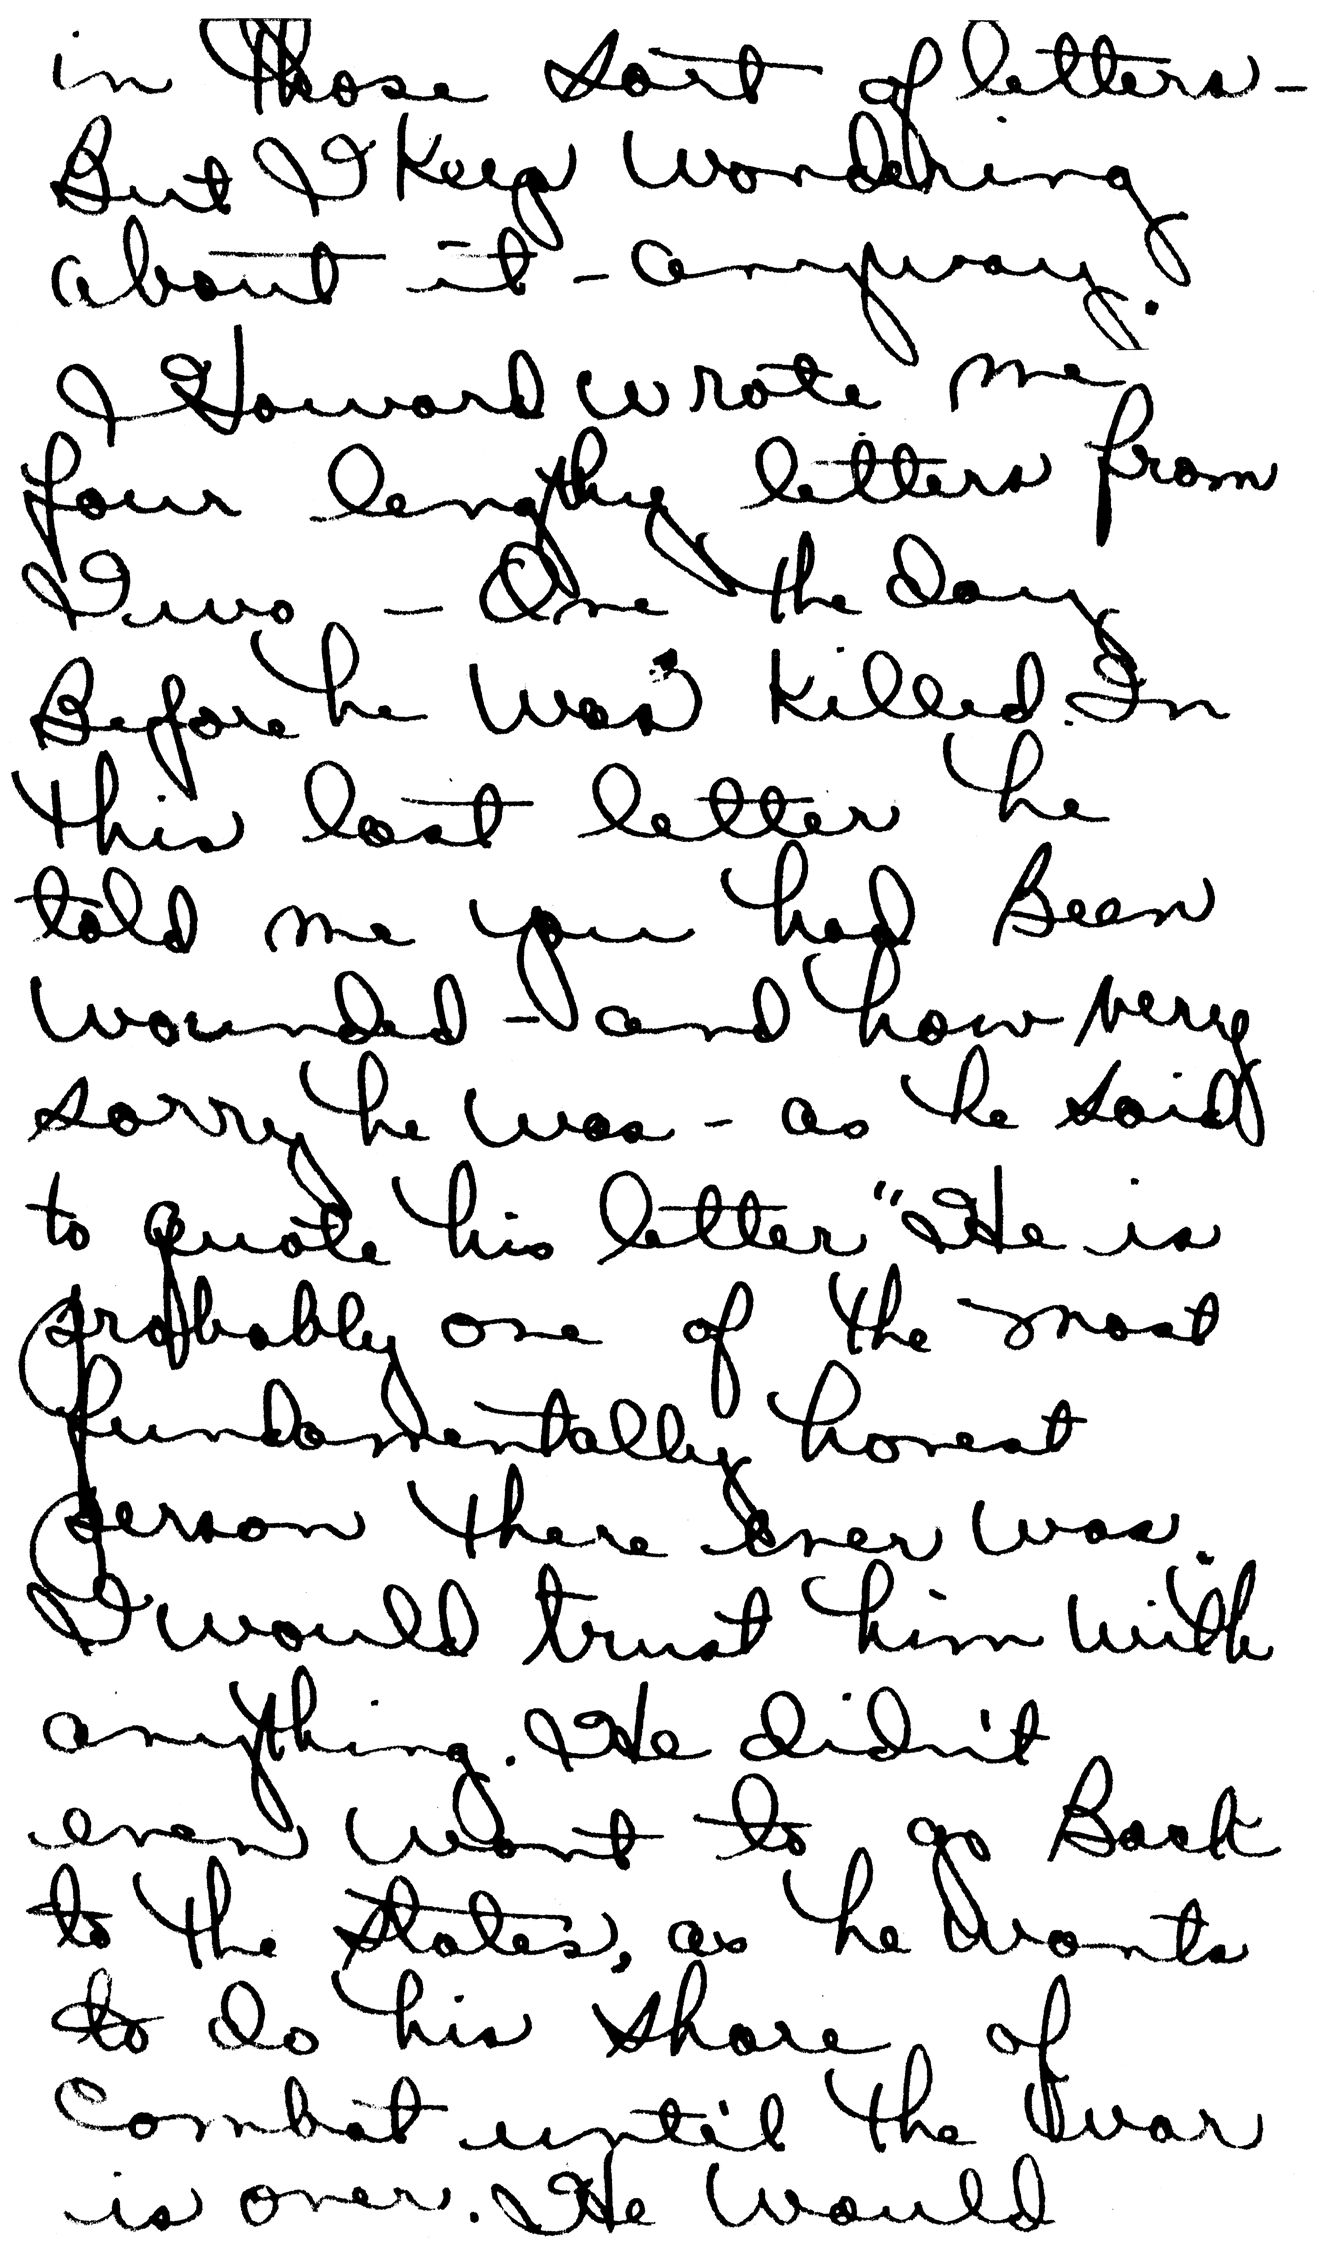 in those sort of letters -
But I Keep wondering
about it - anyway.
Howard wrote me
four lengthy letters from
Iwo - One the day
Before he was killed. In
this last letter he
told me you had Been
wounded - and how very
sorry he was - as he said
to quote his letter "He is
probably one of the most
fundamentally honest
person there ever was.
I would trust him with
anything. He didn't
even want to go Back
to the states, as he wants
to do his share of
combat until the war
is over. He would